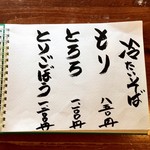 冷たいそば
もり 八五〇円
とろろ 一、一〇〇円
とりごぼう 一、二〇〇円